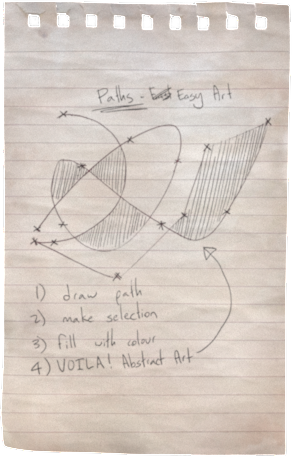 Paths - Easy Art
1) draw path
2) make selection
3) fill with colour
4) VOILA! Abstract Art